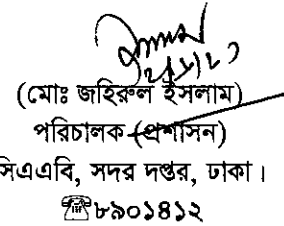 (মোঃ জহিরুল ইসলাম)
পরিচালক (প্রশাসন)
সিএএবি, সদর দপ্তর, ঢাকা।
☎৮৯০১৪১২